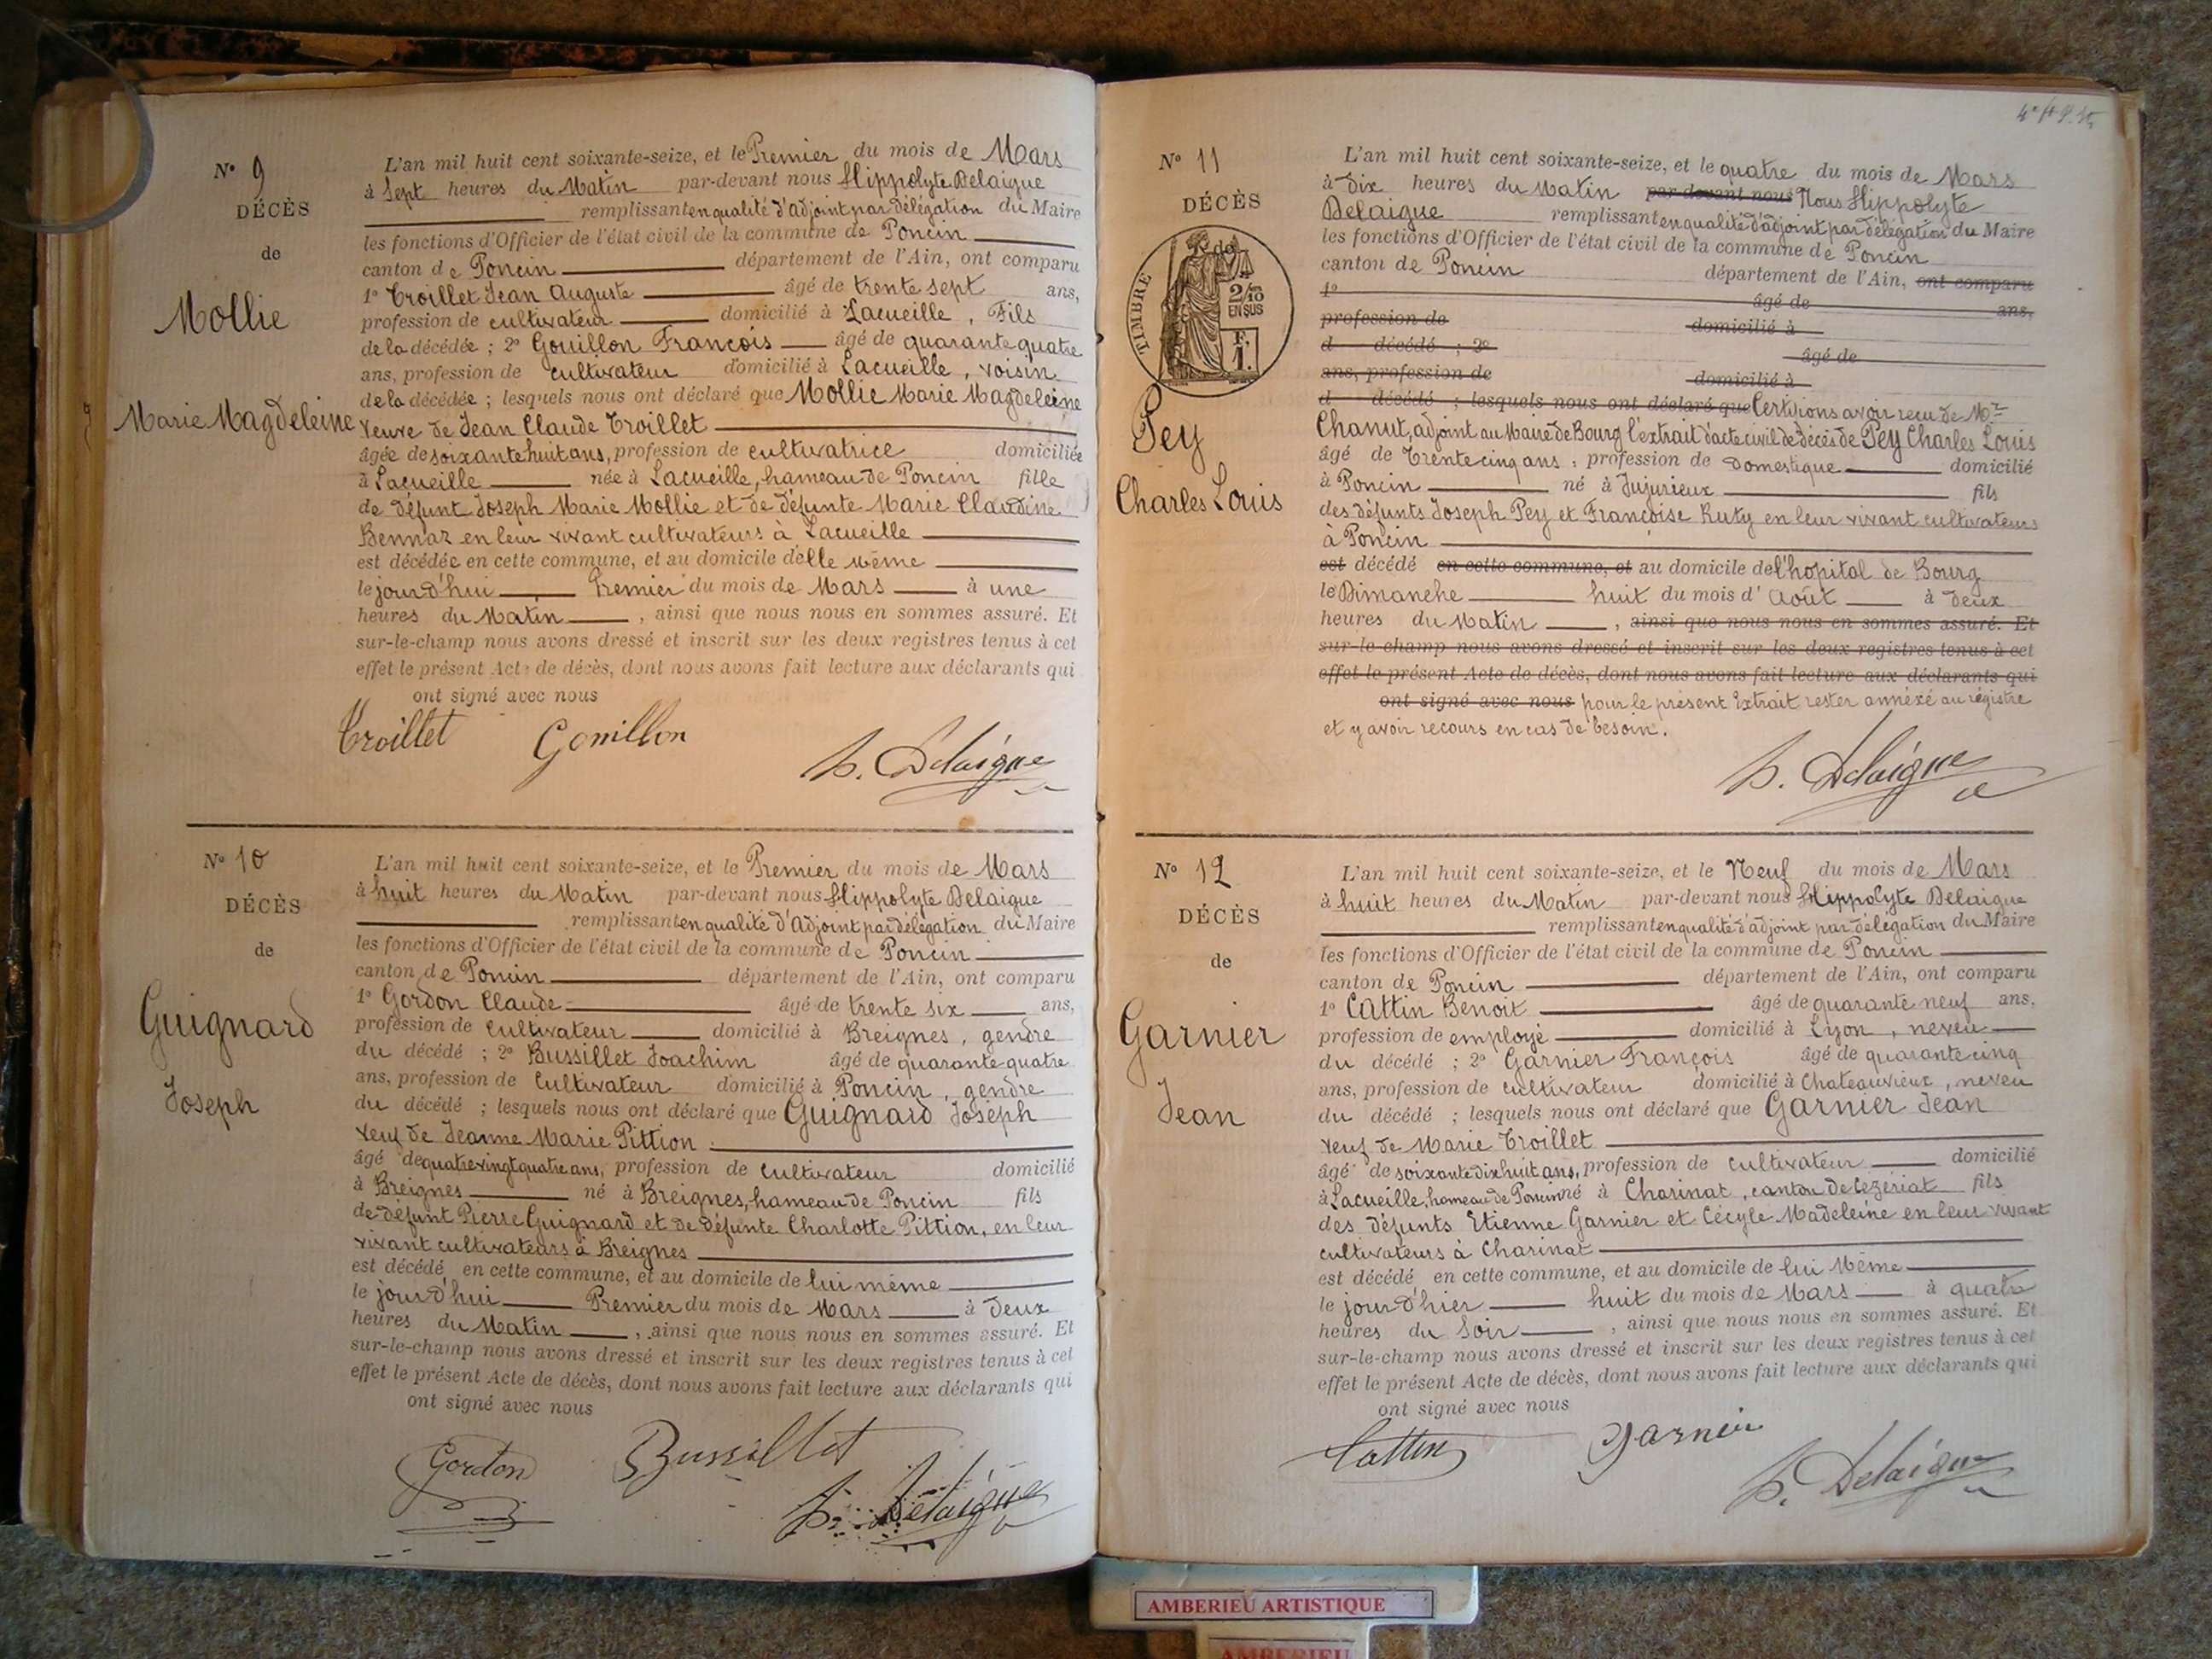 N° 9
DÉCÈS
de
Mollie
Marie Magdeleine
L'an mil huit cent soixante-seize, et le Premier du mois de Mars
à Sept heures du Matin par-devant nous Hippolyte Delaigue
remplissant en qualité d'adjoint par délégation du Maire
les fonctions d'Officier de l'état civil de la commune de Poncin
canton de Poncin département de l'Ain, ont comparu
1° Troillet Jean Auguste âgé de trente sept ans,
profession de cultivateur domicilié à Lacueille, Fils
de la décédée ; 2° Gouillon François âgé de quarante quatre
ans, profession de cultivateur domicilié à Lacueille, voisin
de la décédée ; lesquels nous ont déclaré que Mollie Marie Magdeleine
Veuve de Jean Claude Troillet
âgée de soixante huit ans, profession de cultivatrice domiciliée
à Lacueille née à Lacueille, hameau de Poncin fille
de défunt Joseph Marie Mollie et de défunte Marie Claudine
Bennaz en leur vivant cultivateurs à Lacueille
est décédée en cette commune, et au domicile d'elle même
le jourd'hui Premier du mois de Mars à une
heures du Matin, ainsi que nous nous en sommes assuré. Et
sur-le-champ nous avons dressé et inscrit sur les deux registres tenus à cet
effet le présent Acte de décès, dont nous avons fait lecture aux déclarants qui
ont signé avec nous
Troillet Gouillon h. Delaigue
N° 10
DÉCÈS
de
Guignard
Joseph
L'an mil huit cent soixante-seize, et le Premier du mois de Mars
à huit heures du Matin par-devant nous Hippolyte Delaigue
remplissant en qualité d'Adjoint par délégation du Maire
les fonctions d'Officier de l'état civil de la commune de Poncin
canton de Poncin département de l'Ain, ont comparu
1° Gordon Claude âgé de trente six ans,
profession de Cultivateur domicilié à Breignes, gendre
du décédé ; 2° Bussillet Joachim âgé de quarante quatre
ans, profession de Cultivateur domicilié à Poncin, gendre
du décédé ; lesquels nous ont déclaré que Guignard Joseph
Veuf de Jeanne Marie Pittion
âgé de quatre vingt quatre ans, profession de Cultivateur domicilié
à Breignes né à Breignes, hameau de Poncin fils
de défunt Pierre Guignard et de défunte Charlotte Pittion, en leur
vivant cultivateurs à Breignes
est décédé en cette commune, et au domicile de lui même
le jourd'hui Premier du mois de Mars à Deux
heures du Matin, ainsi que nous nous en sommes assuré. Et
sur-le-champ nous avons dressé et inscrit sur les deux registres tenus à cet
effet le présent Acte de décès, dont nous avons fait lecture aux déclarants qui
ont signé avec nous
Gordon Bussillet h. Delaigue
N° 11
DÉCÈS
de
TIMBRE
2/10
EN SUS
F.
1.
Pey
Charles Louis
L'an mil huit cent soixante-seize, et le quatre du mois de Mars
à Dix heures du Matin par-devant nous Nous Hippolyte
Delaigue remplissant en qualité d'adjoint par délégation du Maire
les fonctions d'Officier de l'état civil de la commune de Poncin
canton de Poncin département de l'Ain, ont comparu
1° âgé de ans,
profession de domicilié à
d décédé ; 2° âgé de
ans, profession de domicilié à
d décédé ; lesquels nous ont déclaré que Certifions avoir reçu de Mr
Chanut, adjoint au Maire de Bourg l'extrait d'acte civil de décès de Pey Charles Louis
âgé de Trente cinq ans, profession de Domestique domicilié
à Poncin né à Jujurieux fils
des défunts Joseph Pey et Françoise Ruty en leur vivant cultivateurs
à Poncin
est décédé en cette commune, et au domicile de l'hopital de Bourg
le Dimanche huit du mois d'Août à Deux
heures du Matin, ainsi que nous nous en sommes assuré. Et
sur-le-champ nous avons dressé et inscrit sur les deux registres tenus à cet
effet le présent Acte de décès, dont nous avons fait lecture aux déclarants qui
ont signé avec nous pour le présent Extrait rester annéxé au régistre
et y avoir recours en cas de besoin.
h. Delaigue
N° 12
DÉCÈS
de
Garnier
Jean
L'an mil huit cent soixante-seize, et le Neuf du mois de Mars
à huit heures du Matin par-devant nous Hippolyte Delaigue
remplissant en qualité d'adjoint par délégation du Maire
les fonctions d'Officier de l'état civil de la commune de Poncin
canton de Poncin département de l'Ain, ont comparu
1° Cattin Benoit âgé de quarante neuf ans,
profession de employé domicilié à Lyon, neveu
du décédé ; 2° Garnier François âgé de quarante cinq
ans, profession de cultivateur domicilié à Chateauvieux, neveu
du décédé ; lesquels nous ont déclaré que Garnier Jean
Veuf de Marie Troillet
âgé de soixante dix huit ans, profession de Cultivateur domicilié
à Lacueille, hameau de Poncin né à Charinat, canton de Cezériat fils
des défunts Etienne Garnier et Cécyle Madeleine en leur vivant
cultivateurs à Charinat
est décédé en cette commune, et au domicile de lui Même
le jour d'hier huit du mois de Mars à quatre
heures du Soir, ainsi que nous nous en sommes assuré. Et
sur-le-champ nous avons dressé et inscrit sur les deux registres tenus à cet
effet le présent Acte de décès, dont nous avons fait lecture aux déclarants qui
ont signé avec nous
Cattin Garnier h. Delaigue
AMBERIEU ARTISTIQUE
AMBERIEU